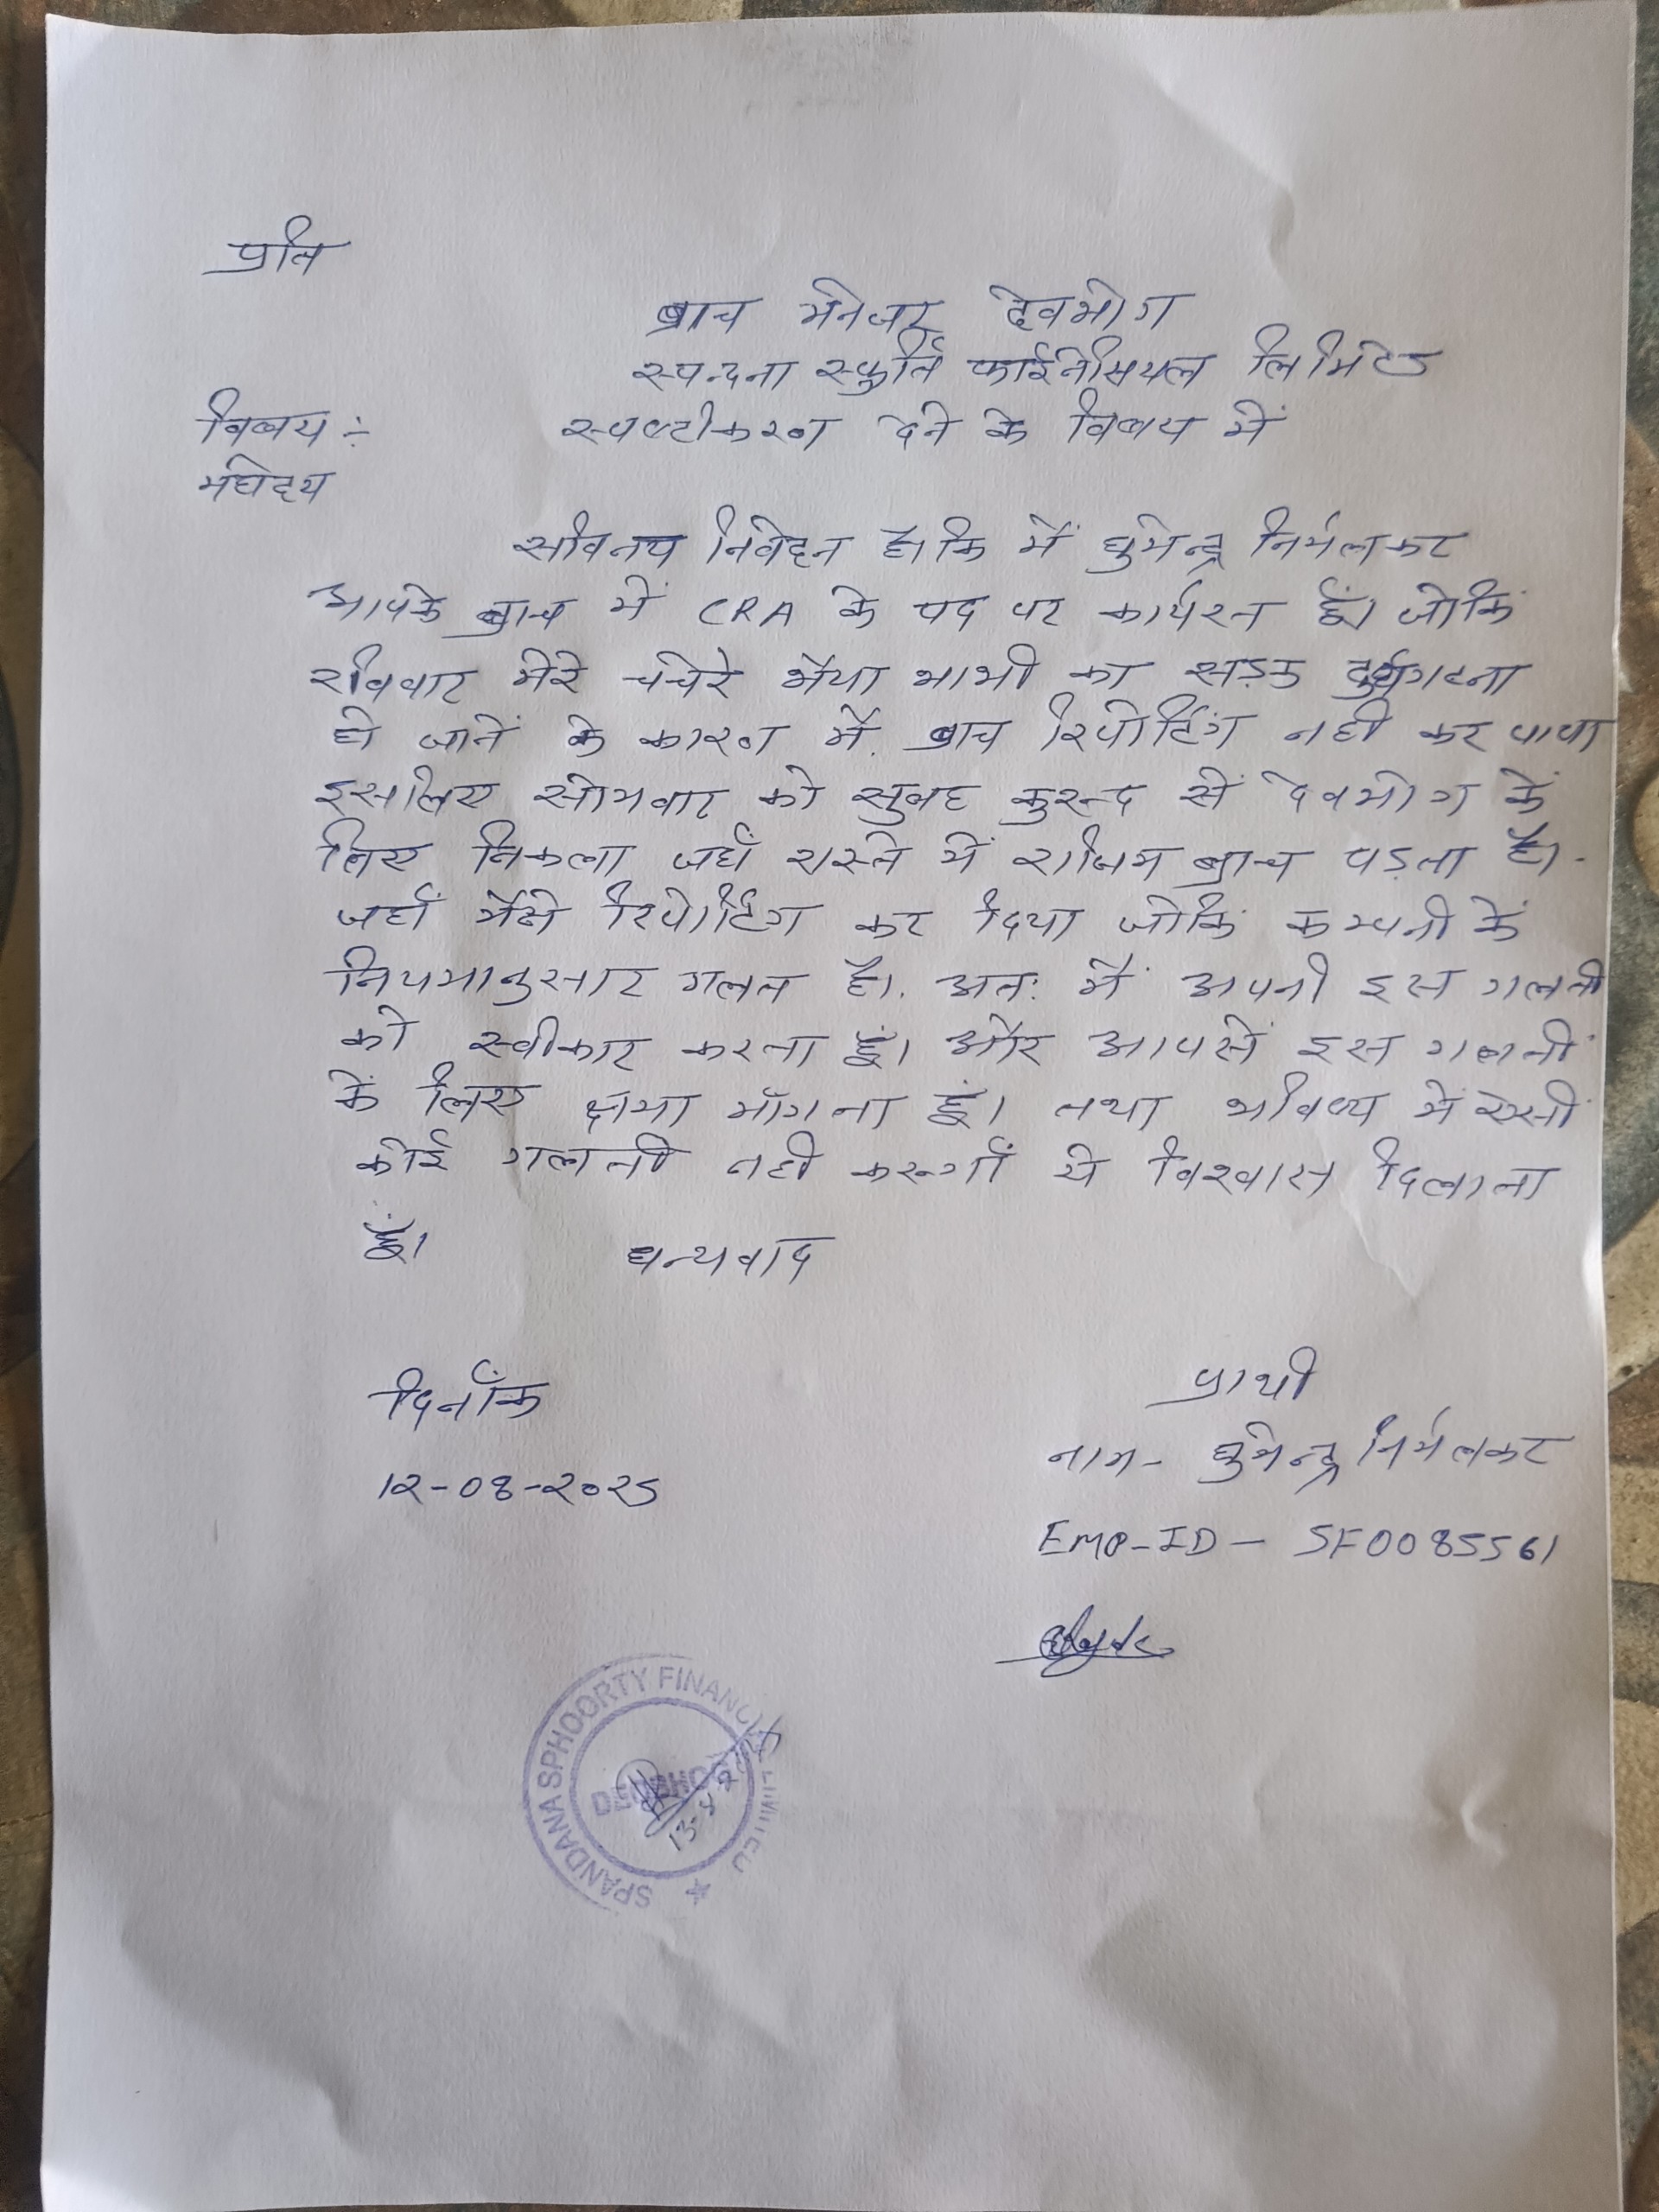 प्रति
ब्राच मेनेजर देवभोग
स्पन्दना स्फुर्ति फाईनेंसियल लिमिटेड
विषय :-
स्पष्टीकरण देने के विषय में
महोदय
सविनय निवेदन है। कि में घुमेन्द्र निर्मलकर
आपके ब्राच में CRA के पद पर कार्यरत हुं। जोकि
रविवार मेरे चचेरे भैया भाभी का सड़क दुर्घगटना
हो जानें के कारण में ब्राच रिपोर्टिंग नही कर पाया
इसलिए सोमवार को सुबह कुरुन्द सें देवभोग कें
लिए निकला जहाँ रास्ते में राजिम ब्राच पड़ता है।
जहाँ मैंने रिपोर्टिंग कर दिया जोकिं कम्पनी कें
नियमानुसार गलत है। अतः मैं अपनी इस गलती
को स्वीकार करता हुं। और आपसें इस गलतीं
कें लिए क्षमा माँगता हुं। तथा भविष्य में ऐसीं
कोई गलती नही करुगाँ ये विश्वास दिलाता
हुं।
धन्यवाद
दिनाँक
12-08-2025
प्राथी
नाम - घुमेन्द्र निर्मलकर
EMP-ID - SF0085561
SPANDANA SPHOORTY FINANCIAL LIMITED
13-8-25